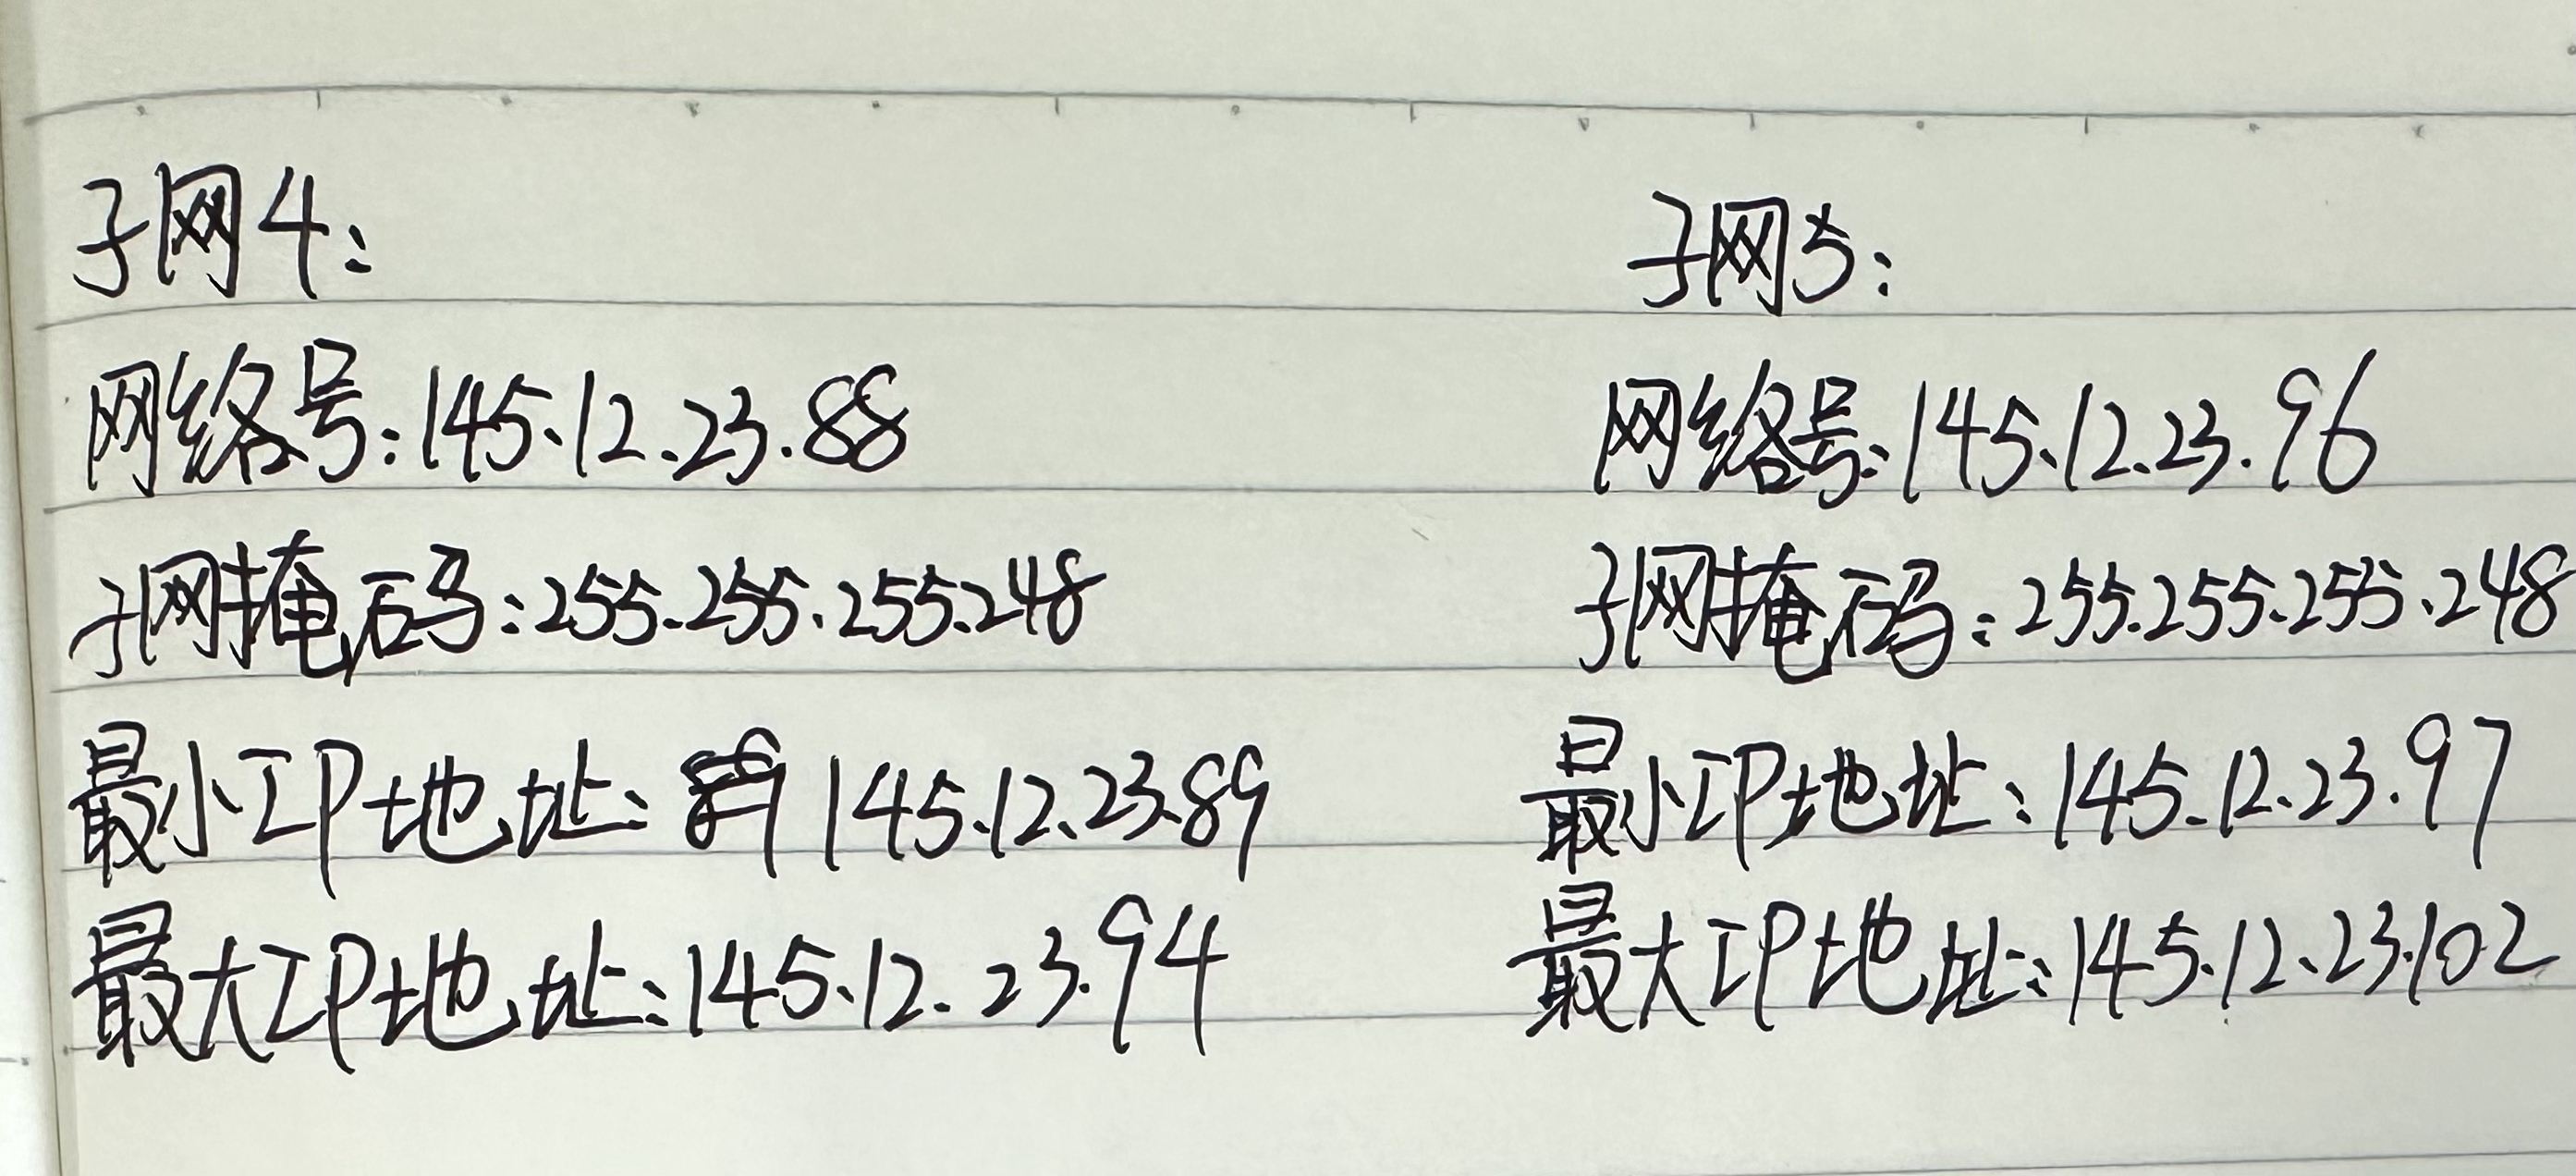 子网4:
网络号:145.12.23.88
子网掩码:255.255.255.248
最小IP地址: 145.12.23.89
最大IP地址:145.12.23.94
子网5:
网络号:145.12.23.96
子网掩码:255.255.255.248
最小IP地址:145.12.23.97
最大IP地址:145.12.23.102